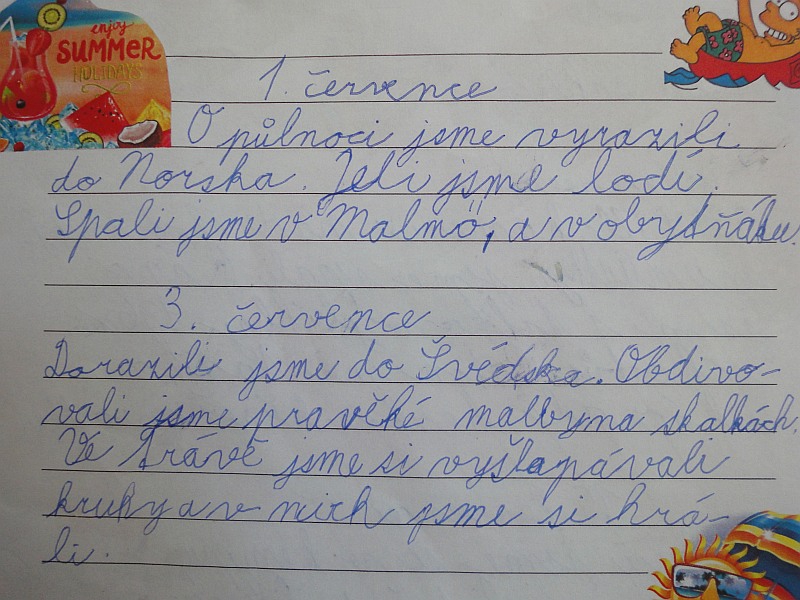 enjoy
SUMMER
HOLIDAYS
1. července
O půlnoci jsme vyrazili
do Norska. Jeli jsme lodí.
Spali jsme v Malmö, a v obytňáku.
3. července
Dorazili jsme do Švédska. Obdivo-
vali jsme pravěké malby na skalkách.
Ve trávě jsme si vyšlapávali
kruhy a v nich jsme si hrá-
li.